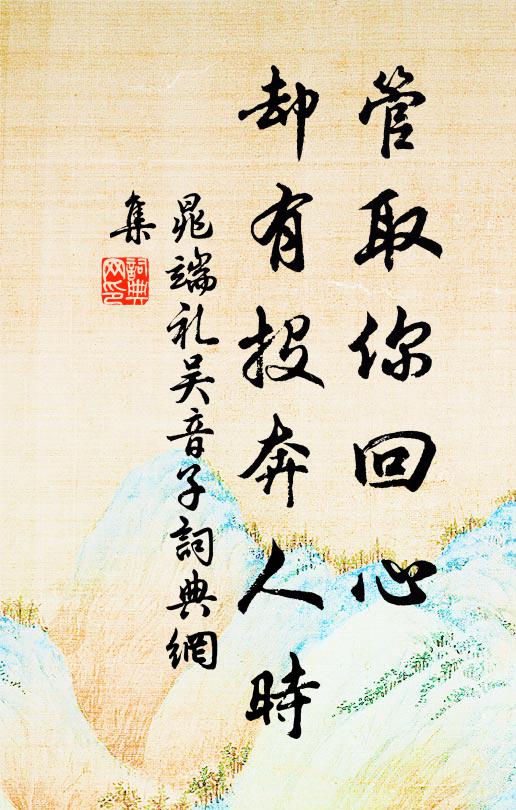 管取你回心
却有投奔人時
晁端礼吴音子詞典網
集
詞典網印